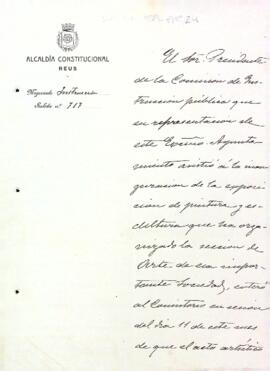 ALCALDÍA CONSTITUCIONAL
REUS
Negociado Instrucción
Salida n.º 717
El Sor. Presidente
de la Comisión de Ins-
trucción pública que
en representación de
este Excmo. Ayunta-
miento asistió á la inau-
guración de la exposi-
ción de pintura y es-
cultura que ha orga-
nizado la sección de
Arte de esa impor-
tante Sociedad, enteró
al Consistorio en sesión
del día 11 de este mes
de que el acto artístico